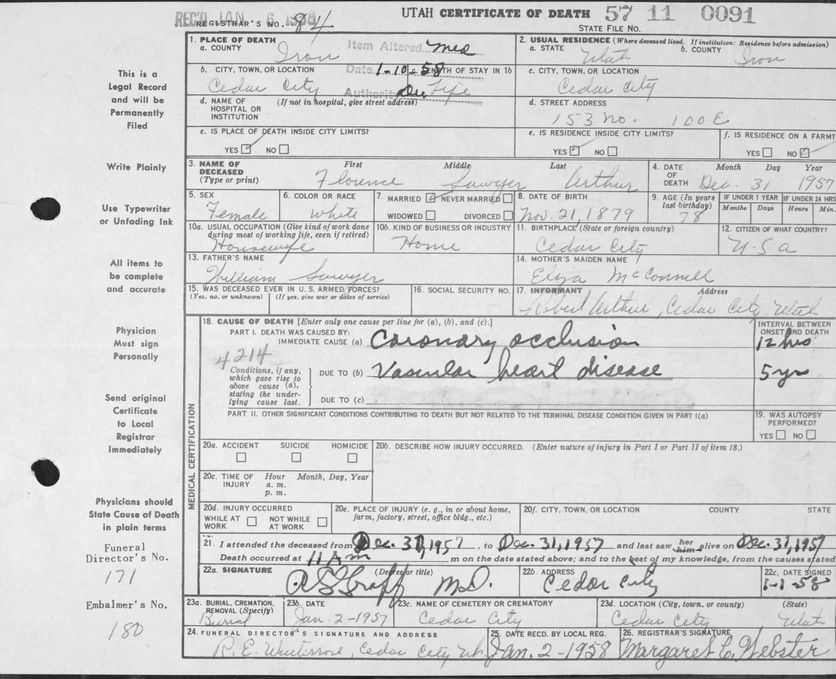 REC'D JAN 6 1958 UTAH CERTIFICATE OF DEATH 57 11 0091
REGISTRAR'S NO. 84 STATE FILE NO.
1. PLACE OF DEATH
a. COUNTY Iron
Item Altered Med
Date 1-10-58
Authority
2. USUAL RESIDENCE (Where deceased lived. If institution: Residence before admission)
a. STATE Utah b. COUNTY Iron
b. CITY, TOWN, OR LOCATION Cedar City
LENGTH OF STAY IN 1b Life
c. CITY, TOWN, OR LOCATION
Cedar City
d. NAME OF HOSPITAL OR INSTITUTION (If not in hospital, give street address)
d. STREET ADDRESS
153 No. 100 E
e. IS PLACE OF DEATH INSIDE CITY LIMITS?
YES NO
e. IS RESIDENCE INSIDE CITY LIMITS?
YES NO
f. IS RESIDENCE ON A FARM?
YES NO
3. NAME OF DECEASED (Type or print)
First Middle Last
Florence Sawyer Arthur
4. DATE OF DEATH Month Day Year
Dec. 31 1957
5. SEX
Female
6. COLOR OR RACE
White
7. MARRIED NEVER MARRIED
WIDOWED DIVORCED
8. DATE OF BIRTH
Nov. 21, 1879
9. AGE (In years last birthday)
78
IF UNDER 1 YEAR IF UNDER 24 HRS
Months Days Hours Min.
10a. USUAL OCCUPATION (Give kind of work done during most of working life, even if retired)
Housewife
10b. KIND OF BUSINESS OR INDUSTRY
Home
11. BIRTHPLACE (State or foreign country)
Cedar City
12. CITIZEN OF WHAT COUNTRY?
U.S.A
13. FATHER'S NAME
William Sawyer
14. MOTHER'S MAIDEN NAME
Eliza McConnell
15. WAS DECEASED EVER IN U.S. ARMED FORCES?
(Yes, no, or unknown) (If yes, give war or dates of service)
16. SOCIAL SECURITY NO.
17. INFORMANT Address
Robert Arthur, Cedar City, Utah
18. CAUSE OF DEATH [Enter only one cause per line for (a), (b), and (c).]
INTERVAL BETWEEN ONSET AND DEATH
PART I. DEATH WAS CAUSED BY:
IMMEDIATE CAUSE (a) Coronary occlusion 12 hrs
4214
Conditions, if any, which gave rise to above cause (a), stating the underlying cause last.
DUE TO (b) Vascular heart disease 5 yrs
DUE TO (c)
PART II. OTHER SIGNIFICANT CONDITIONS CONTRIBUTING TO DEATH BUT NOT RELATED TO THE TERMINAL DISEASE CONDITION GIVEN IN PART I(a)
19. WAS AUTOPSY PERFORMED?
YES NO
20a. ACCIDENT SUICIDE HOMICIDE
20b. DESCRIBE HOW INJURY OCCURRED. (Enter nature of injury in Part I or Part II of item 18.)
20c. TIME OF INJURY Hour Month, Day, Year
a. m.
p. m.
20d. INJURY OCCURRED
WHILE AT WORK NOT WHILE AT WORK
20e. PLACE OF INJURY (e. g., in or about home, farm, factory, street, office bldg., etc.)
20f. CITY, TOWN, OR LOCATION COUNTY STATE
21. I attended the deceased from Dec. 31, 1957, to Dec. 31, 1957 and last saw her him alive on Dec. 31, 1957
Death occurred at 11 A m m on the date stated above; and to the best of my knowledge, from the causes stated
22a. SIGNATURE (Degree or title)
M.D.
22b. ADDRESS
Cedar City
22c. DATE SIGNED
1-1-58
23a. BURIAL, CREMATION, REMOVAL (Specify)
Burial
23b. DATE
Jan. 2-1957
23c. NAME OF CEMETERY OR CREMATORY
Cedar City
23d. LOCATION (City, town, or county) (State)
Cedar City Utah
24. FUNERAL DIRECTOR'S SIGNATURE AND ADDRESS
Cedar City Ut.
25. DATE RECD. BY LOCAL REG.
Jan. 2-1958
26. REGISTRAR'S SIGNATURE
Margaret C. Webster
MEDICAL CERTIFICATION
This is a
Legal Record
and will be
Permanently
Filed
Write Plainly
Use Typewriter
or Unfading Ink
All items to
be complete
and accurate
Physician
Must sign
Personally
Send original
Certificate
to Local
Registrar
Immediately
Physicians should
State Cause of Death
in plain terms
Funeral
Director's No.
171
Embalmer's No.
180